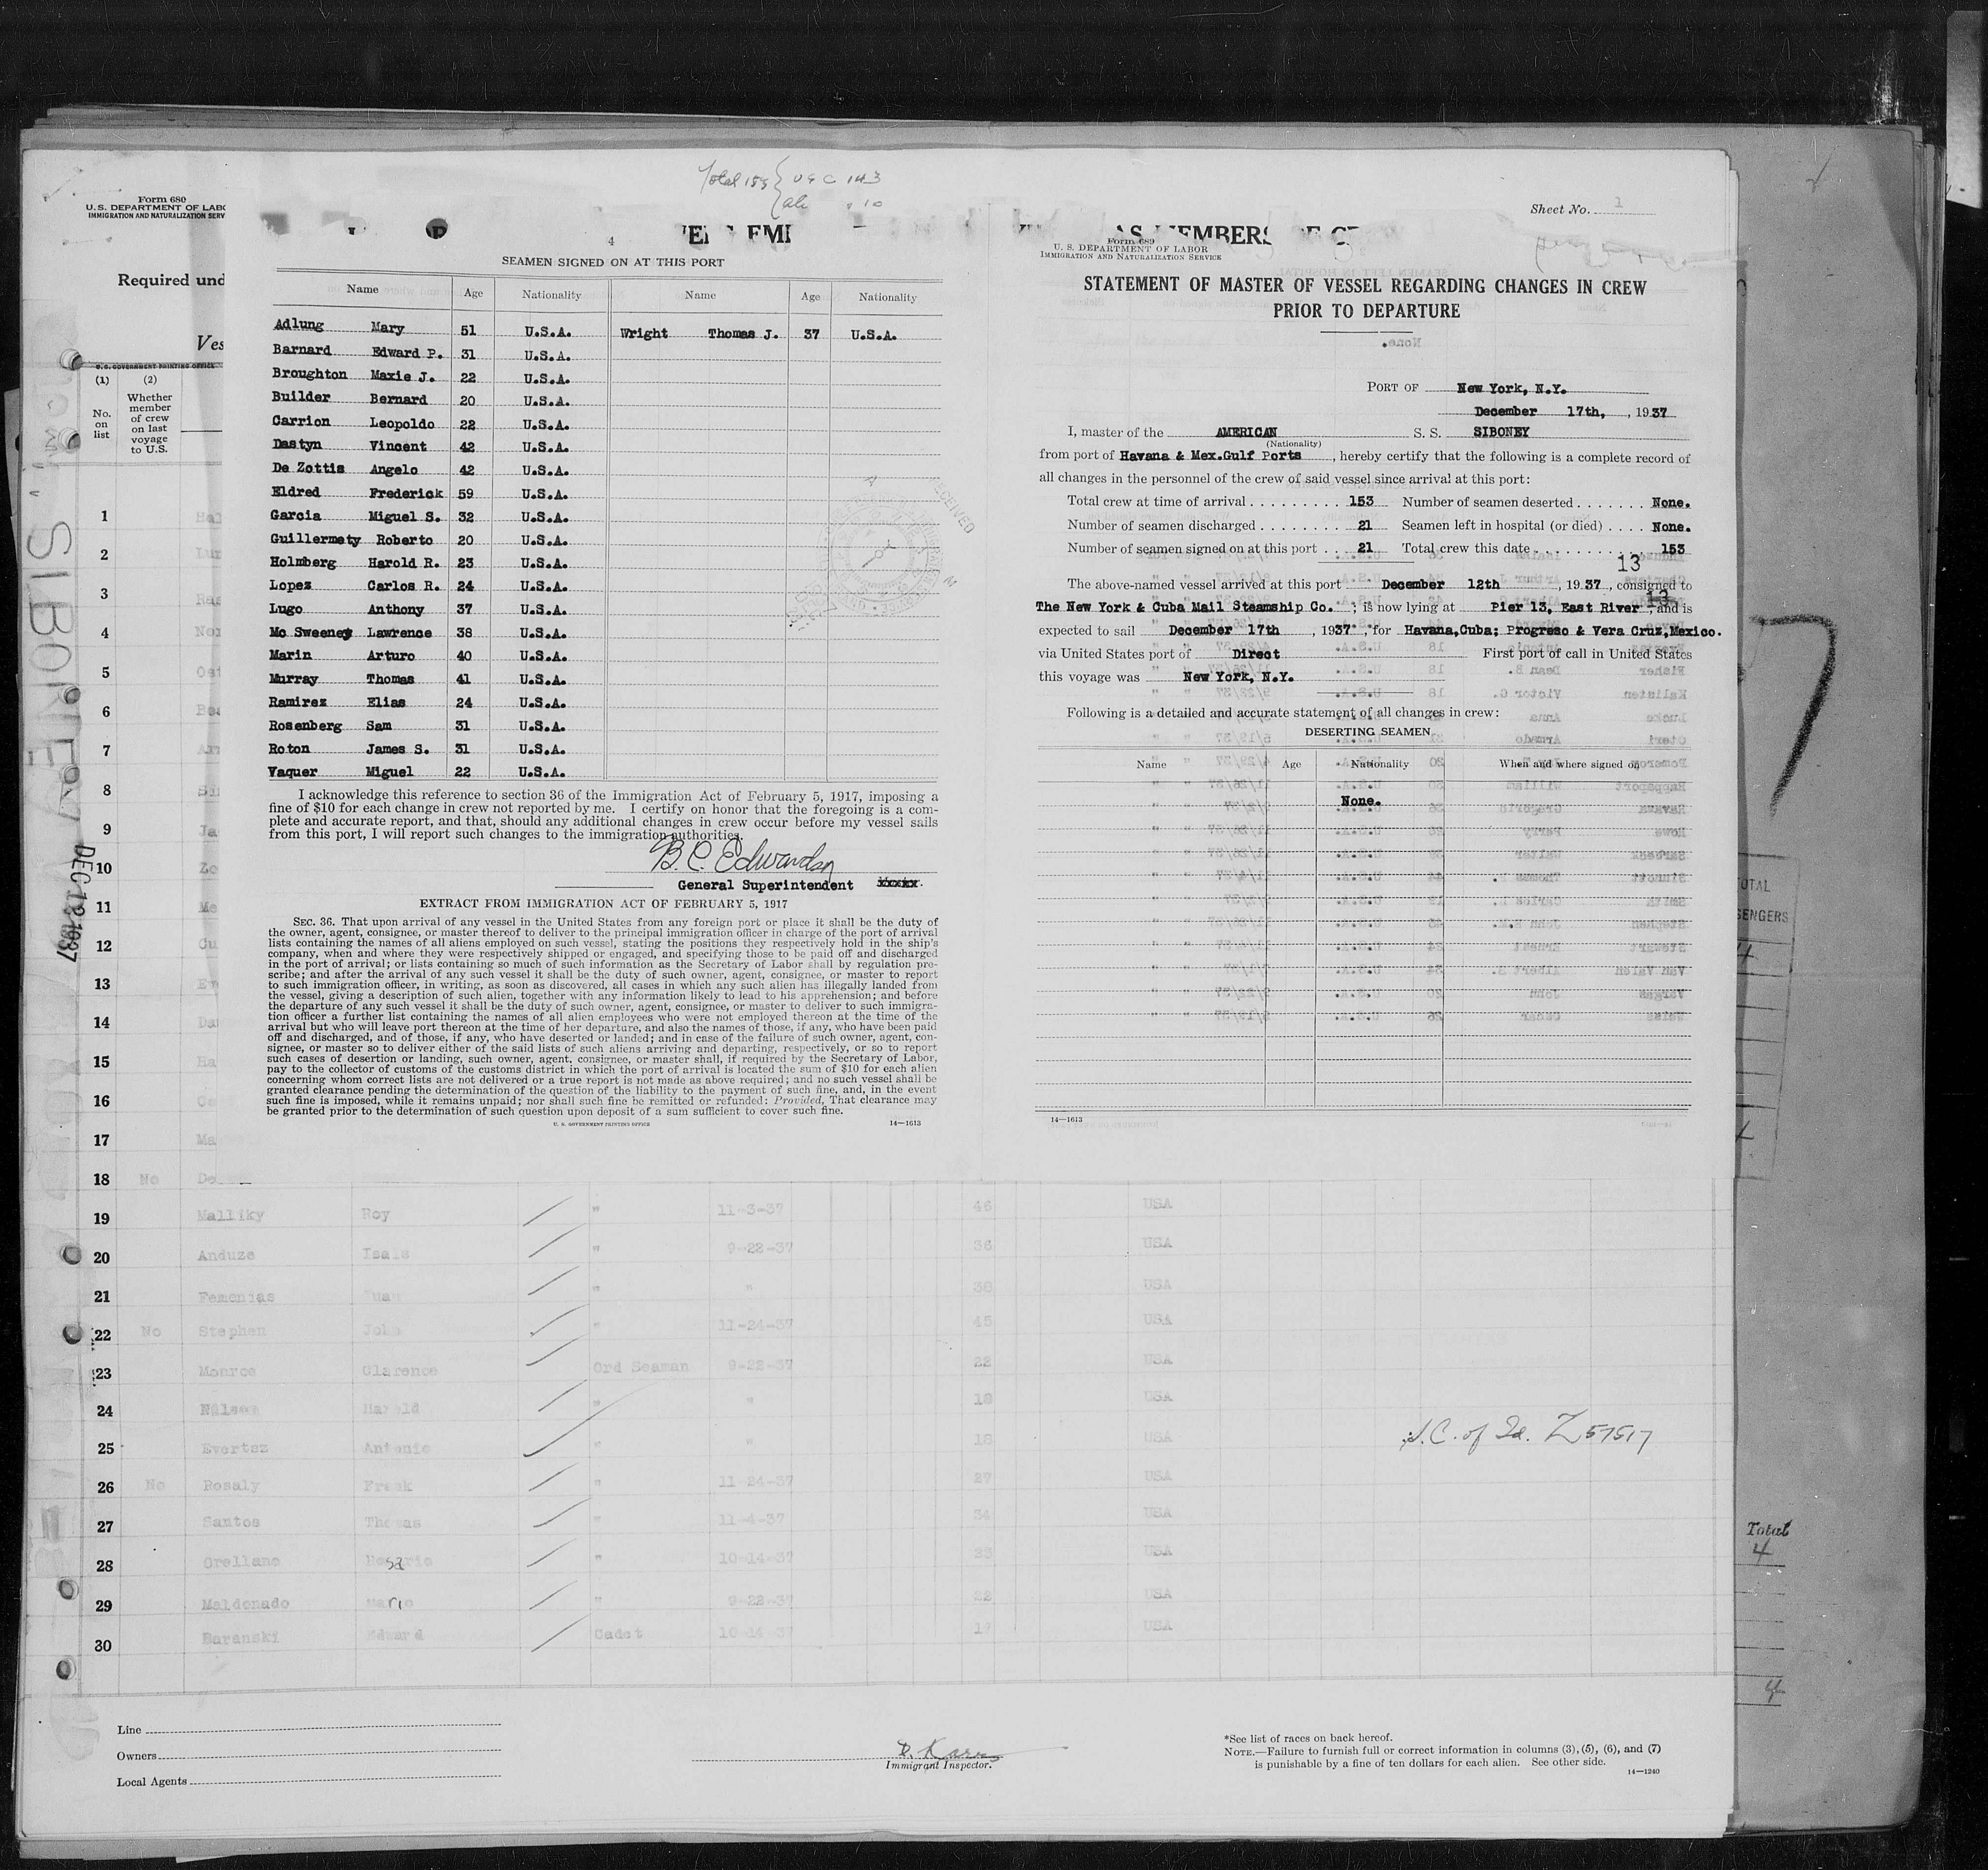 Total 153 { USC 143
al. " 10
Form 680
U.S. DEPARTMENT OF LABO
IMMIGRATION AND NATURALIZATION SERV
Required und
Ves
U.S. GOVERNMENT PRINTING OFFICE
(1) (2)
No. on list
Whether member of crew on last voyage to U.S.
SIBONEY
DEC 12 1937
4
SEAMEN SIGNED ON AT THIS PORT
Name Age Nationality Name Age Nationality
Adlung Mary 51 U.S.A. Wright Thomas J. 37 U.S.A.
Barnard Edward P. 31 U.S.A.
Broughton Maxie J. 22 U.S.A.
Builder Bernard 20 U.S.A.
Carrion Leopoldo 22 U.S.A.
Dastyn Vincent 42 U.S.A.
De Zottis Angelo 42 U.S.A.
Eldred Frederick 59 U.S.A.
Garcia Miguel S. 32 U.S.A.
Guillermety Roberto 20 U.S.A.
Holmberg Harold R. 23 U.S.A.
Lopez Carlos R. 24 U.S.A.
Lugo Anthony 37 U.S.A.
Mc Sweeney Lawrence 38 U.S.A.
Marin Arturo 40 U.S.A.
Murray Thomas 41 U.S.A.
Ramirez Elias 24 U.S.A.
Rosenberg Sam 31 U.S.A.
Roton James S. 31 U.S.A.
Vaquer Miguel 22 U.S.A.
I acknowledge this reference to section 36 of the Immigration Act of February 5, 1917, imposing a
fine of $10 for each change in crew not reported by me. I certify on honor that the foregoing is a com-
plete and accurate report, and that, should any additional changes in crew occur before my vessel sails
from this port, I will report such changes to the immigration authorities.
B. C. Edwards
General Superintendent xxxxx.
EXTRACT FROM IMMIGRATION ACT OF FEBRUARY 5, 1917
SEC. 36. That upon arrival of any vessel in the United States from any foreign port or place it shall be the duty of
the owner, agent, consignee, or master thereof to deliver to the principal immigration officer in charge of the port of arrival
lists containing the names of all aliens employed on such vessel, stating the positions they respectively hold in the ship's
company, when and where they were respectively shipped or engaged, and specifying those to be paid off and discharged
in the port of arrival; or lists containing so much of such information as the Secretary of Labor shall by regulation pre-
scribe; and after the arrival of any such vessel it shall be the duty of such owner, agent, consignee, or master to report
to such immigration officer, in writing, as soon as discovered, all cases in which any such alien has illegally landed from
the vessel, giving a description of such alien, together with any information likely to lead to his apprehension; and before
the departure of any such vessel it shall be the duty of such owner, agent, consignee, or master to deliver to such immigra-
tion officer a further list containing the names of all alien employees who were not employed thereon at the time of the
arrival but who will leave port thereon at the time of her departure, and also the names of those, if any, who have been paid
off and discharged, and of those, if any, who have deserted or landed; and in case of the failure of such owner, agent, con-
signee, or master so to deliver either of the said lists of such aliens arriving and departing, respectively, or so to report
such cases of desertion or landing, such owner, agent, consignee, or master shall, if required by the Secretary of Labor,
pay to the collector of customs of the customs district in which the port of arrival is located the sum of $10 for each alien
concerning whom correct lists are not delivered or a true report is not made as above required; and no such vessel shall be
granted clearance pending the determination of the question of the liability to the payment of such fine, and, in the event
such fine is imposed, while it remains unpaid; nor shall such fine be remitted or refunded: Provided, That clearance may
be granted prior to the determination of such question upon deposit of a sum sufficient to cover such fine.
U. S. GOVERNMENT PRINTING OFFICE 14—1613
RECEIVED
Sheet No. 1
AS MEMBERS OF C
Form 689
U. S. DEPARTMENT OF LABOR
IMMIGRATION AND NATURALIZATION SERVICE
STATEMENT OF MASTER OF VESSEL REGARDING CHANGES IN CREW
PRIOR TO DEPARTURE
PORT OF New York, N.Y.
December 17th, , 1937
I, master of the AMERICAN S. S. SIBONEY
(Nationality)
from port of Havana & Mex.Gulf Ports , hereby certify that the following is a complete record of
all changes in the personnel of the crew of said vessel since arrival at this port:
Total crew at time of arrival 153 Number of seamen deserted None.
Number of seamen discharged 21 Seamen left in hospital (or died) None.
Number of seamen signed on at this port 21 Total crew this date 153
13
The above-named vessel arrived at this port December 12th , 1937 , consigned to
13
The New York & Cuba Mail Steamship Co. ; is now lying at Pier 13, East River , and is
expected to sail December 17th , 1937 , for Havana,Cuba; Progreso & Vera Cruz,Mexico.
via United States port of Direct First port of call in United States
this voyage was New York, N.Y.
Following is a detailed and accurate statement of all changes in crew:
DESERTING SEAMEN
Name Age Nationality When and where signed on
None.
14—1613
1
2
3
4
5
6
7
8
9
10
11
12
13
14
15
16
17
18 No
19 Malliky Roy " 11-3-37 46 USA
20 Anduze Isais " 9-22-37 36 USA
21 Femenias Juan " " 38 USA
22 No Stephen John " 11-24-37 45 USA
23 Monroe Clarence Ord Seaman 9-22-37 22 USA
24 Nilsen Harold " " 18 USA
25 Evertsz Antonio " " 18 USA S.C. of Id. Z 57517
26 No Rosaly Frank " 11-24-37 27 USA
27 Santos Thomas " 11-4-37 34 USA
28 Orellano Rosario " 10-14-37 23 USA
29 Maldonado Mario " 9-22-37 22 USA
30 Baranski Edward Cadet 10-14-37 17 USA
Line
Owners
Local Agents
D. Karns
Immigrant Inspector.
*See list of races on back hereof.
NOTE.—Failure to furnish full or correct information in columns (3), (5), (6), and (7)
is punishable by a fine of ten dollars for each alien. See other side.
14—1240
7
OTAL
SENGERS
Total
4
4